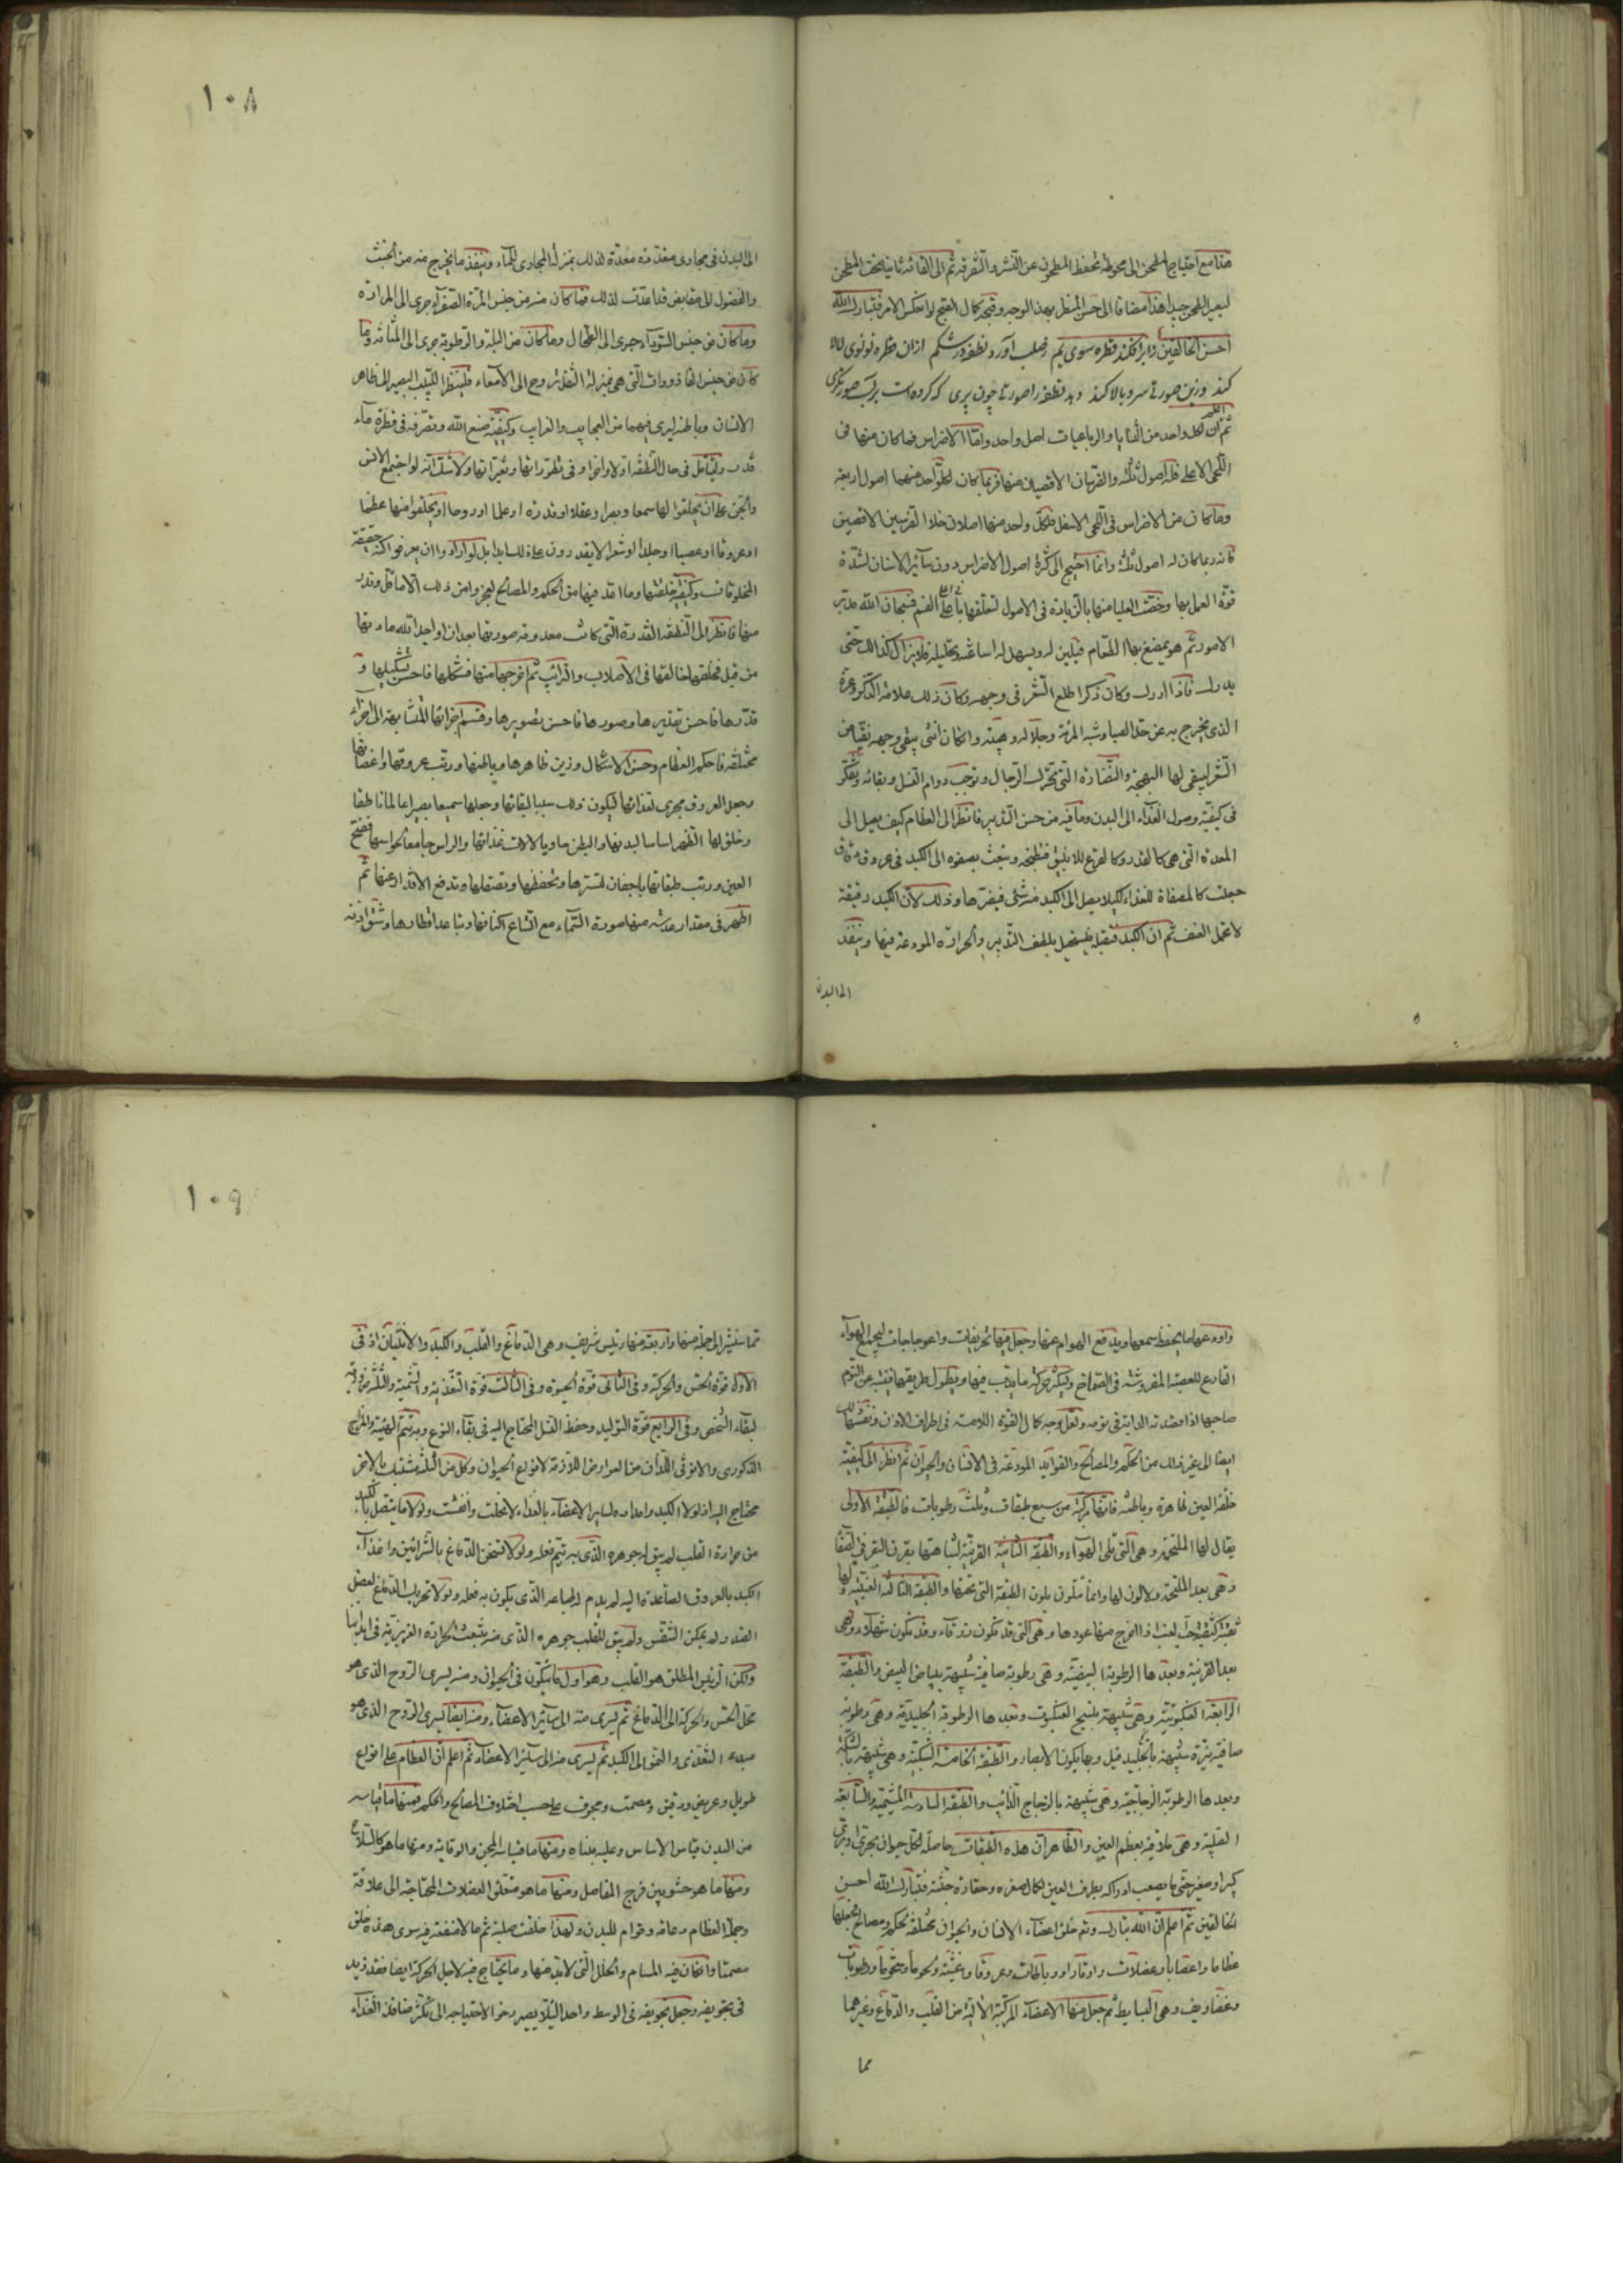 هذا مع احتياج المطحن الى محوطة تحفظ المطحون عن النشر والتفرقة ثم الى القائه ثانيا تحت المطحن
ليصيل الطحن جيدا هذا مضافا الى حسن المنظر بهذا الوجه وقبحه كال القبح لو انعكس الامر فتبارك الله
احسن الخالقين زابر افكند قطره سوى يم زصلب آورد نطفه در شكم ازان قطره لولوى لالا
كند وزين صورتى سرو بالا كند دهد نطفه را صورتى چون پرى كه كرده است بر آب صورتگرى
ثم ان لكل واحد من الثنايا والرباعيات اصل واحد واما الاضراس فما كان منها فى
اللحى الاعلى فله اصول ثلثة والضرسان الاقصيان منها فربما كان لكل واحد منهما اصول اربعة
وما كان من الاضراس فى اللحى الاسفل فلكل واحد منها اصلان خلا الضرسين الاقصيين
فانه ربما كان له اصول ثلثة وانما احتيج الى كثرة اصول الاضراس دون سائر الاسنان لشدة
قوة العمل بها وخصت العليا منها بالزيادة فى الاصول لتعلقها باعلى الفم فسبحان الله مدبر
الامور ثم هو يمضغ بها الطعام فيلين له ويسهل له اساغته وتحليله فلا يزال كذلك حتى
يدرك فاذا ادرك وكان ذكرا طلع الشعر فى وجهه وكان ذلك علامة الذكر وعزة
الذى يخرج به عن حد الصبا وشبه المرئة وجلاله وهيبته وان كان انثى يبقى وجهه نقيا من
الشعر ليبقى لها البهجة والنضارة التى تحرك الرجال وتوجب دوام النسل وبقائه وتفكر
فى كيفية وصول الغذاء الى البدن وما فيه من حسن التدبير فانظر الى الطعام كيف يصل الى
المعدة التى هى كالقدر وكالقرع للانبيق فتطبخه وتبعث بصفوه الى الكبد فى عروق دقاق
جعلت كالمصفاة للغذاء لكيلا يصل الى الكبد منه شئ فيضرها وذلك لان الكبد رقيقة
لا تحمل العنف ثم ان الكبد تقبله فيستحيل بلطف التدبير والحرارة المودعة فيها وينفذ
الى البدن
١٠٨
الى البدن فى مجارى منفذة معدة لذلك بمنزلة المجارى للماء وينفذ ما يخرج منه من الخبث
والفضول الى مفايض قد اعدت لذلك فما كان منه من جنس المرة الصفراء جرى الى المرارة
وما كان من جنس السوداء جرى الى الطحال وما كان من البلة والرطوبة جرى الى المثانة وما
كان من جنس القاذورات التى هى بمنزلة الثفل تروح الى الامعاء فلينظر اللبيب البصير الى ظاهر
الانسان وباطنه ليرى فيهما من العجايب والغرايب وكيفية صنع الله وتصرفه فى قطرة ماء
قذر وليتأمل فى حال النطفة اولا واخرا وفى تطوراتها وتغيراتها ولا شك انه لو اجتمع الانس
والجن على ان يخلقوا لها سمعا وبصرا وعقلا او قدرة او علما او روحا او يخلقوا منها عظما
او عروقا او عصبا او جلدا او شعرا لا يقدرون على ذلك ابدا بل لو ارادوا ان يعرفوا كنه حقيقة
المخلوقات وكيفية خلقتها وما اقد فيها من الحكم والمصالح لعجزوا من ذلك الا ما قل وقدر
منها فانظر الى النطفة القذرة التى كانت معدومة صورتها بعد ان اوجد الله مادتها
من قبل فخلقها خالقها فى الاصلاب والترائب ثم اخرجها منها فشكلها فاحسن تشكيلها و
قدرها فاحسن تقديرها وصورها فاحسن تصويرها وقسم اجزائها المتشابهة الى اجزاء
مختلفة فاحكم العظام وحسن الاشكال وزين ظاهرها وباطنها ورتب عروقها واعصابها
وجعل العروق مجرى لغذائها ليكون ذلك سببا لبقائها وجعلها سميعا بصيرا عالما ناطقا
وخلق لها الظهر اساسا لبدنها والبطن حاويا لالات غذائها والراس جامعا لحواسها ففتح
العين ورتب طبقاتها باجفان لتسترها وتحفظها وتصقلها وتدفع الاقذار عنها ثم
اظهر فى مقدار عدسة منها صورة السماء مع اتساع اكنافها وتباعد اقطارها وشق اذنه
واودعها ما يحفظ سمعها ويدفع الهوام عنها وجعل فيها تحريفات واعوجاجات ليجمع الهواء
القارع للعصبة المفروشة فى الصماخ وليكثر حركة ما يدب فيها ويطول طريقها فينتبه عن النوم
صاحبها اذا قصدته الدابة فى نومه ولعل وجه كمال القوة اللامسة فى اطراف الاذن ونفسها لذلك
ايضا الى غير ذلك من الحكم والمصالح والفوايد المودعة فى الانسان والحيوان ثم انظر الى كيفية
خلقة العين ظاهرة وباطنة فانها مركبة من سبع طبقات وثلث رطوبات فالطبقة الاولى
يقال لها الملتحمة وهى التى تلى الهواء والطبقة الثانية القرنية لشباهتها بقرن البقر فى الصفا
وهى بعد الملتحمة ولا لون لها وانما تتلون بلون الطبقة التى تحتها والطبقة الثالثة العنبية ولها
ثقبة كثقبة حب العنب اذا اخرج منها عودها وهى التى قد تكون زرقاء وقد تكون شهلاء وهى
بعد القرنية وبعدها الرطوبة البيضية وهى رطوبة صافية شبيهة ببياض البيض والطبقة
الرابعة العنكبوتية وهى شبيهة بنسيج العنكبوت وبعدها الرطوبة الجليدية وهى رطوبة
صافية نيرة شبيهة بالجليد قيل وبها يكون الابصار والطبقة الخامسة الشبكية وهى شبيهة بالشبكة
وبعدها الرطوبة الزجاجية وهى شبيهة بالزجاج الذائب والطبقة السادسة المشيمية والسابعة
الصلبة وهى ملاقية بعظم العين والظاهر ان هذه الطبقات حاصلة لكل حيوان بحرى او برى
كبير او صغير حتى ما يصعب ادراكه بطرف العين لكمال صغره وحقارة جثته فتبارك الله احسن
الخالقين ثم اعلم ان الله تبارك وتع خلق اعضاء الانسان والحيوان مختلفة لحكم ومصالح فجعلها
عظاما واعصابا وعضلات واوتارا ورباطات وعروقا واغشية ولحوما وشحوما ورطوبات
وغضاريف وهى البسايط ثم جعل منها الاعضاء المركبة الآلية من القلب والدماغ وغيرهما
مما
١٠٩
مما سنشير الى جملة منها واربعة منها رئيس شريف وهى الدماغ والقلب والكبد والانثيان اذ فى
الاول قوة الحس والحركة وفى الثانى قوة الحيوة وفى الثالث قوة التغذية والتنمية والثلثة ضرورية
لبقاء الشخص وفى الرابع قوة التوليد وحفظ النسل المحتاج اليه فى بقاء النوع وبه يتم الهيئة والمزاج
الذكورى والانوثى اللذان من العوارض اللازمة لانواع الحيوان وكل من الثلثة مشتبك بالاخر
محتاج اليه اذ لولا الكبد وامداده لساير الاعضاء بالغذاء لانحلت وانفشت ولولا ما يتصل بالكبد
من حرارة القلب لم يبق له جوهره الذى به يتم فعله ولولا تسخن الدماغ بالشرائين واغذاء
الكبد بالعروق الصاعدة اليه لم يدم له طباعه الذى يكون به فعله ولولا تحريك الدماغ لعضل
الصدر لم يمكن التنفس ولم يبق للقلب جوهره الذى منه ينبعث الحرارة الغريزية فى ابداننا
ولكن الرئيس المطلق هو القلب وهو اول ما يتكون فى الحيوان ومنه يسرى الروح الذى هو
محل الحس والحركة الى الدماغ ثم يسرى منه الى سائر الاعضاء ومنه ايضا يسرى الروح الذى هو
مبدء التغذى والنمو الى الكبد ثم يسرى منه الى سائر الاعضاء ثم اعلم ان العظام على انواع
طويل وعريض ودقيق ومصمت ومجوف على حسب اختلاف المصالح والحكم فمنها ما قياسه
من البدن قياس الاساس وعليه بناه ومنها ما قياسه المجن والوقاية ومنها ما هو كالسلاح
ومنها ما هو حشو بين فرج المفاصل ومنها ما هو متعلق العضلات المحتاجة الى علاقة
وجملة العظام دعامة وقوام للبدن ولهذا خلقت صلبة ثم ما لا منفعة فيه سوى هذه خلق
مصمتا وان كان فيه المسام والخلل التى لا بد منها وما يحتاج فيه لاجل الحركة ايضا فقد زيد
فى تجويفه وجعل تجويفه فى الوسط واحدا لئلا يصير رخوا لاحتياجه الى تكثر منافذ الغذاء